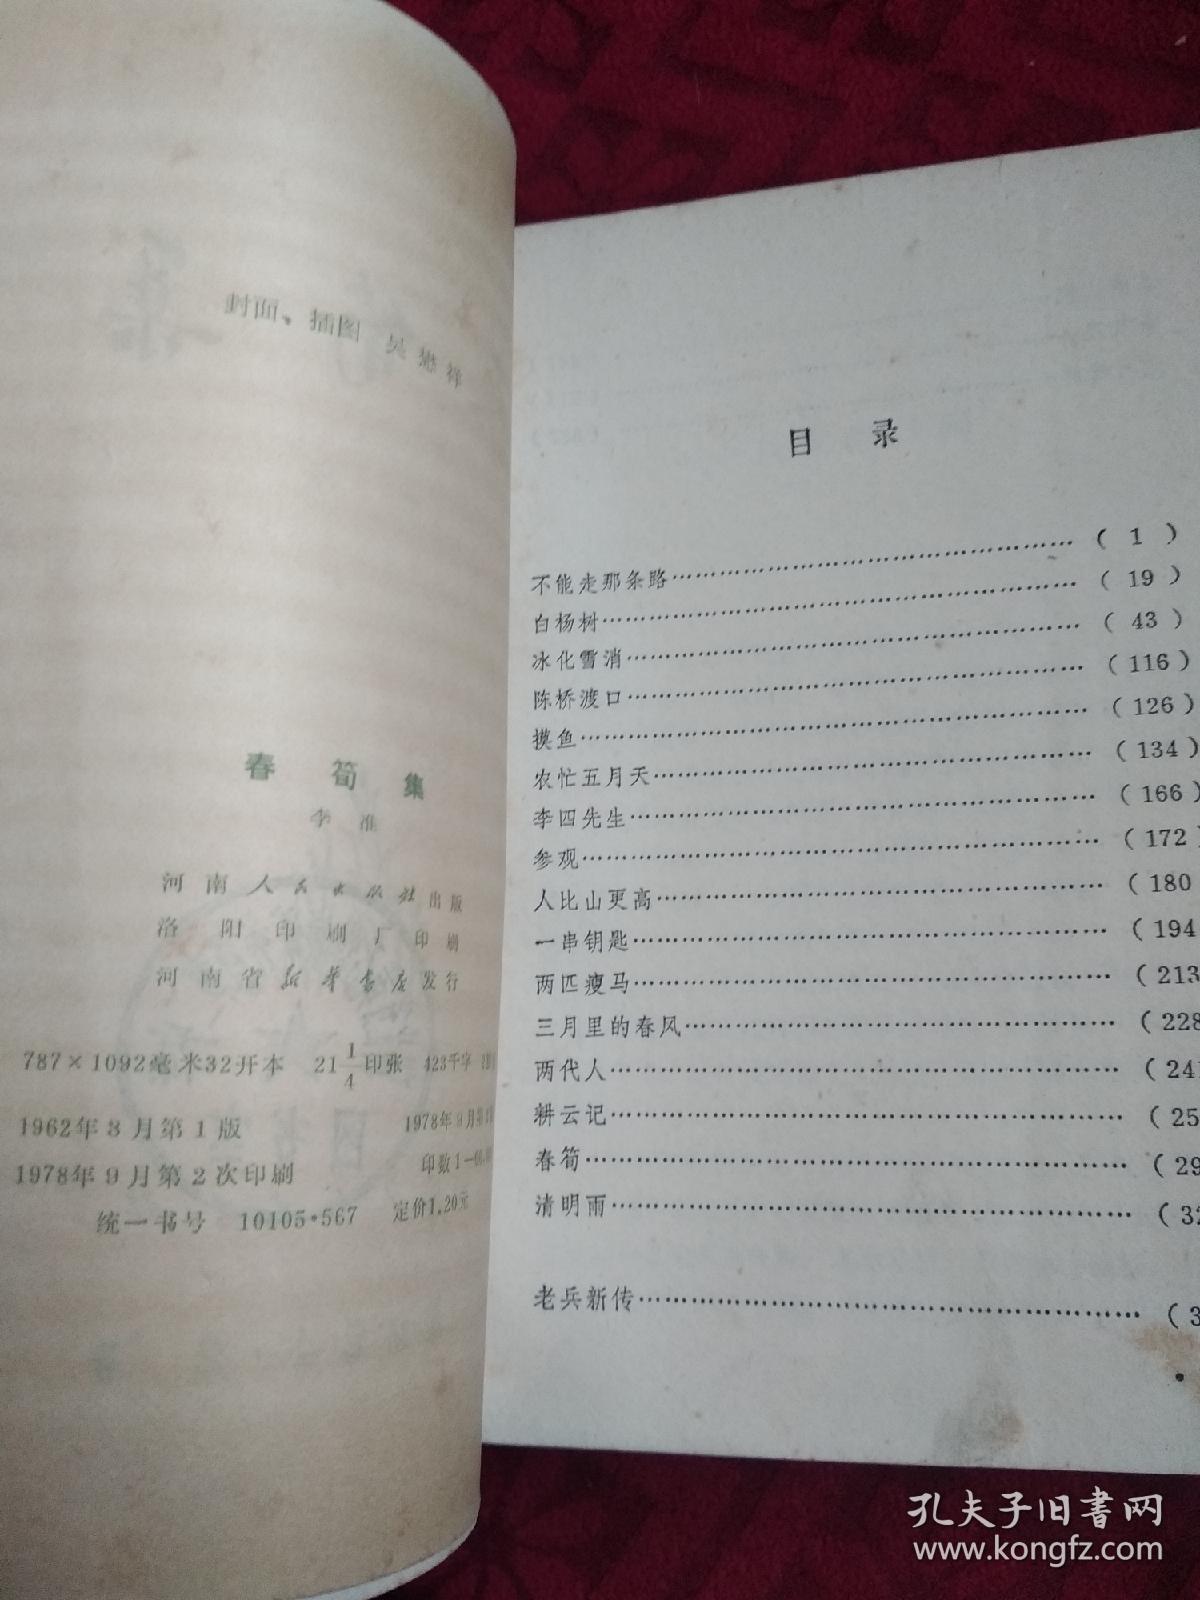 封面、插图 吴懋祥
春筍集
李准
河南人民出版社出版
洛阳印刷厂印刷
河南省新华书店发行
787×1092毫米32开本 21 1/4印张 423千字
1962年8月第1版 1978年9月第
1978年9月第2次印刷 印数1—
统一书号 10105·567 定价1.20元
目 录
不能走那条路……(1)
白杨树……(19)
冰化雪消……(43)
陈桥渡口……(116)
摸鱼……(126)
农忙五月天……(134)
李四先生……(166)
参观……(172)
人比山更高……(180
一串钥匙……(194
两匹瘦马……(213
三月里的春风……(228
两代人……(241
耕云记……(25
春筍……(29
清明雨……(32
老兵新传……(3
孔夫子旧书网
www.kongfz.com